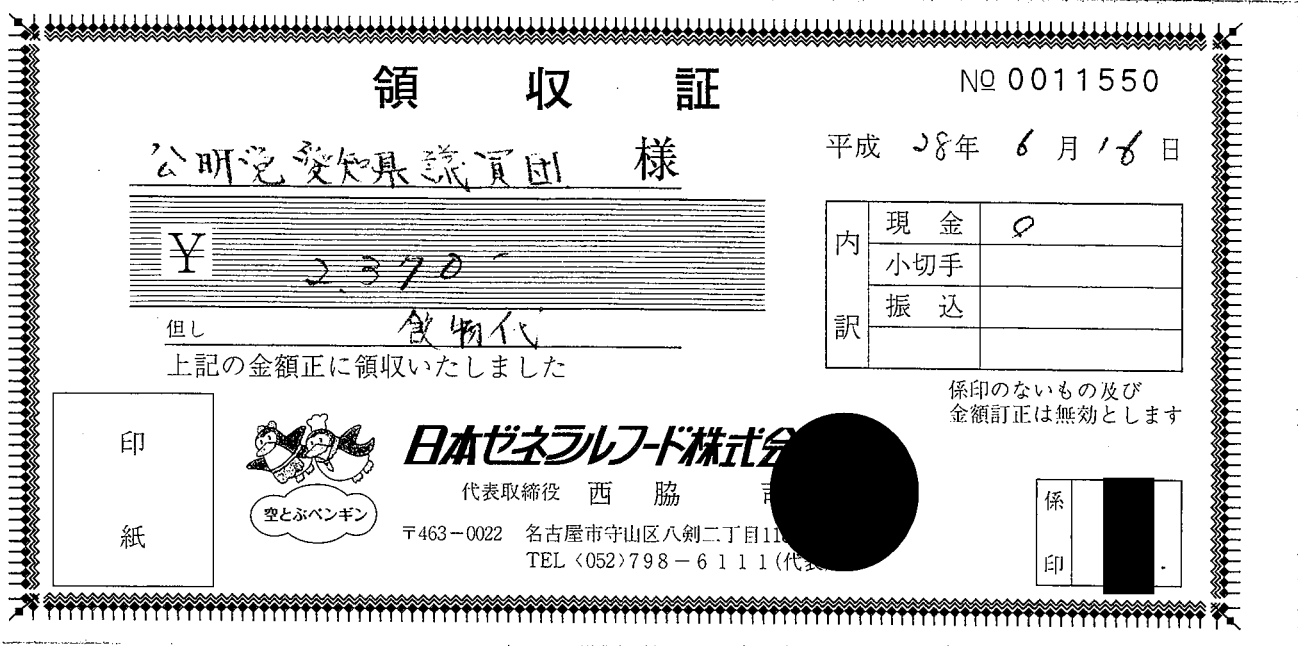 領収証
№ 0011550
公明党愛知県議員団 様
平成 28年 6月 16日
¥ 2,370-
但し 飲物代
上記の金額正に領収いたしました
内訳
現金 0
小切手
振込
係印のないもの及び
金額訂正は無効とします
印紙
空とぶペンギン
日本ゼネラルフード株式会
代表取締役 西脇
〒463-0022 名古屋市守山区八剣二丁目11
TEL〈052〉798-6111(代表
係印